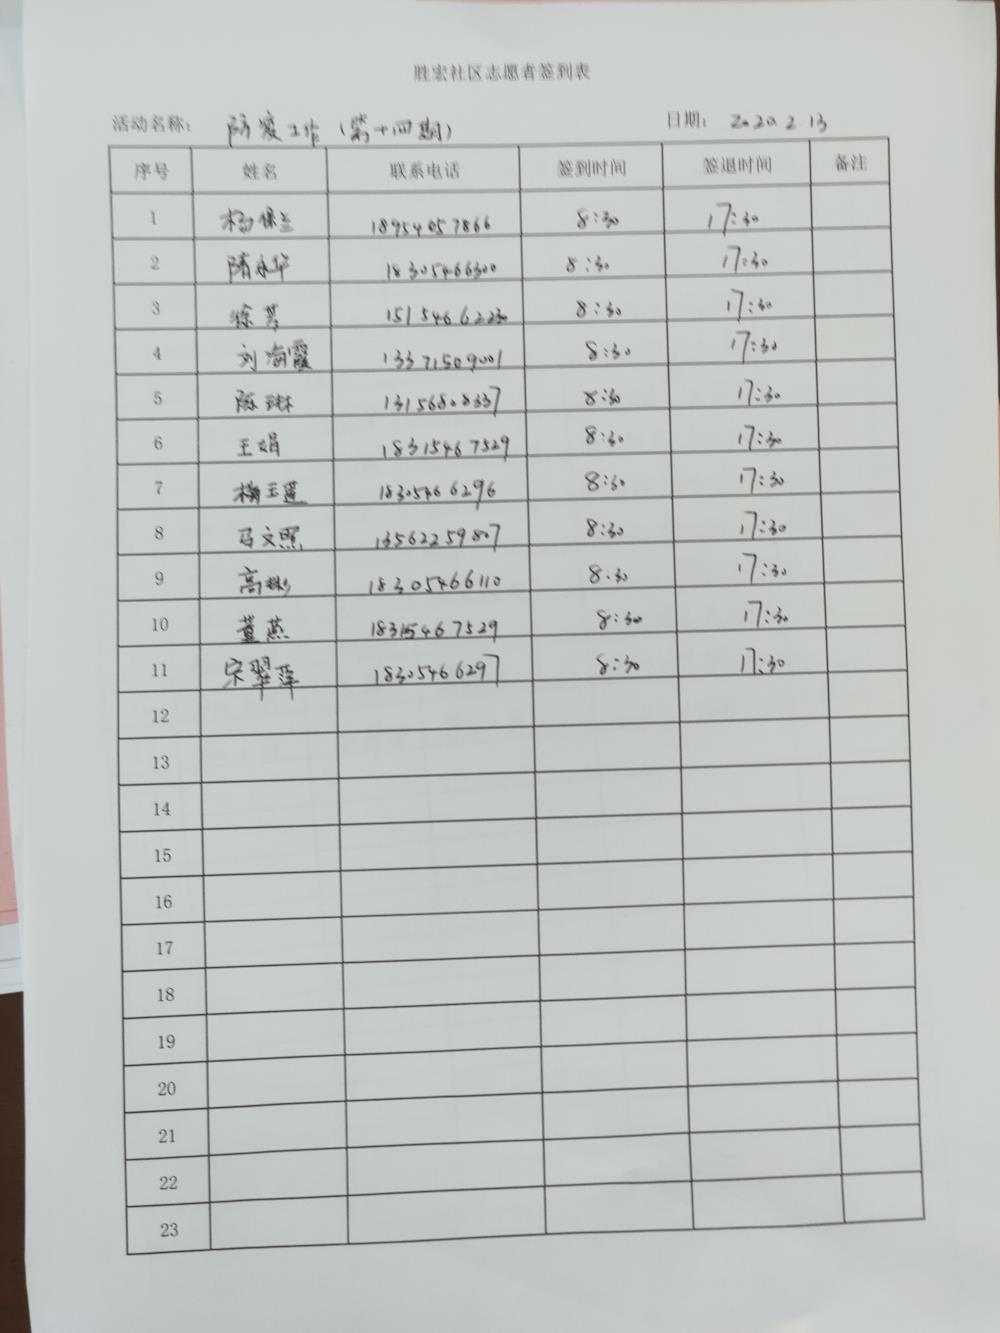 胜宏社区志愿者签到表
活动名称： 防疫工作（第十四期） 日期： 2020.2.13
序号 姓名 联系电话 签到时间 签退时间 备注
1 杨保兰 18954057866 8:30 17:30
2 隋永华 18305466300 8:30 17:30
3 徐芳 15154662230 8:30 17:30
4 刘海霞 13371509001 8:30 17:30
5 陈琳 13156808337 8:30 17:30
6 王娟 18315467529 8:30 17:30
7 梅玉莲 18305466296 8:30 17:30
8 马文照 13562259807 8:30 17:30
9 高彬 18305466110 8:30 17:30
10 董燕 18315467529 8:30 17:30
11 宋翠萍 18305466297 8:30 17:30
12
13
14
15
16
17
18
19
20
21
22
23